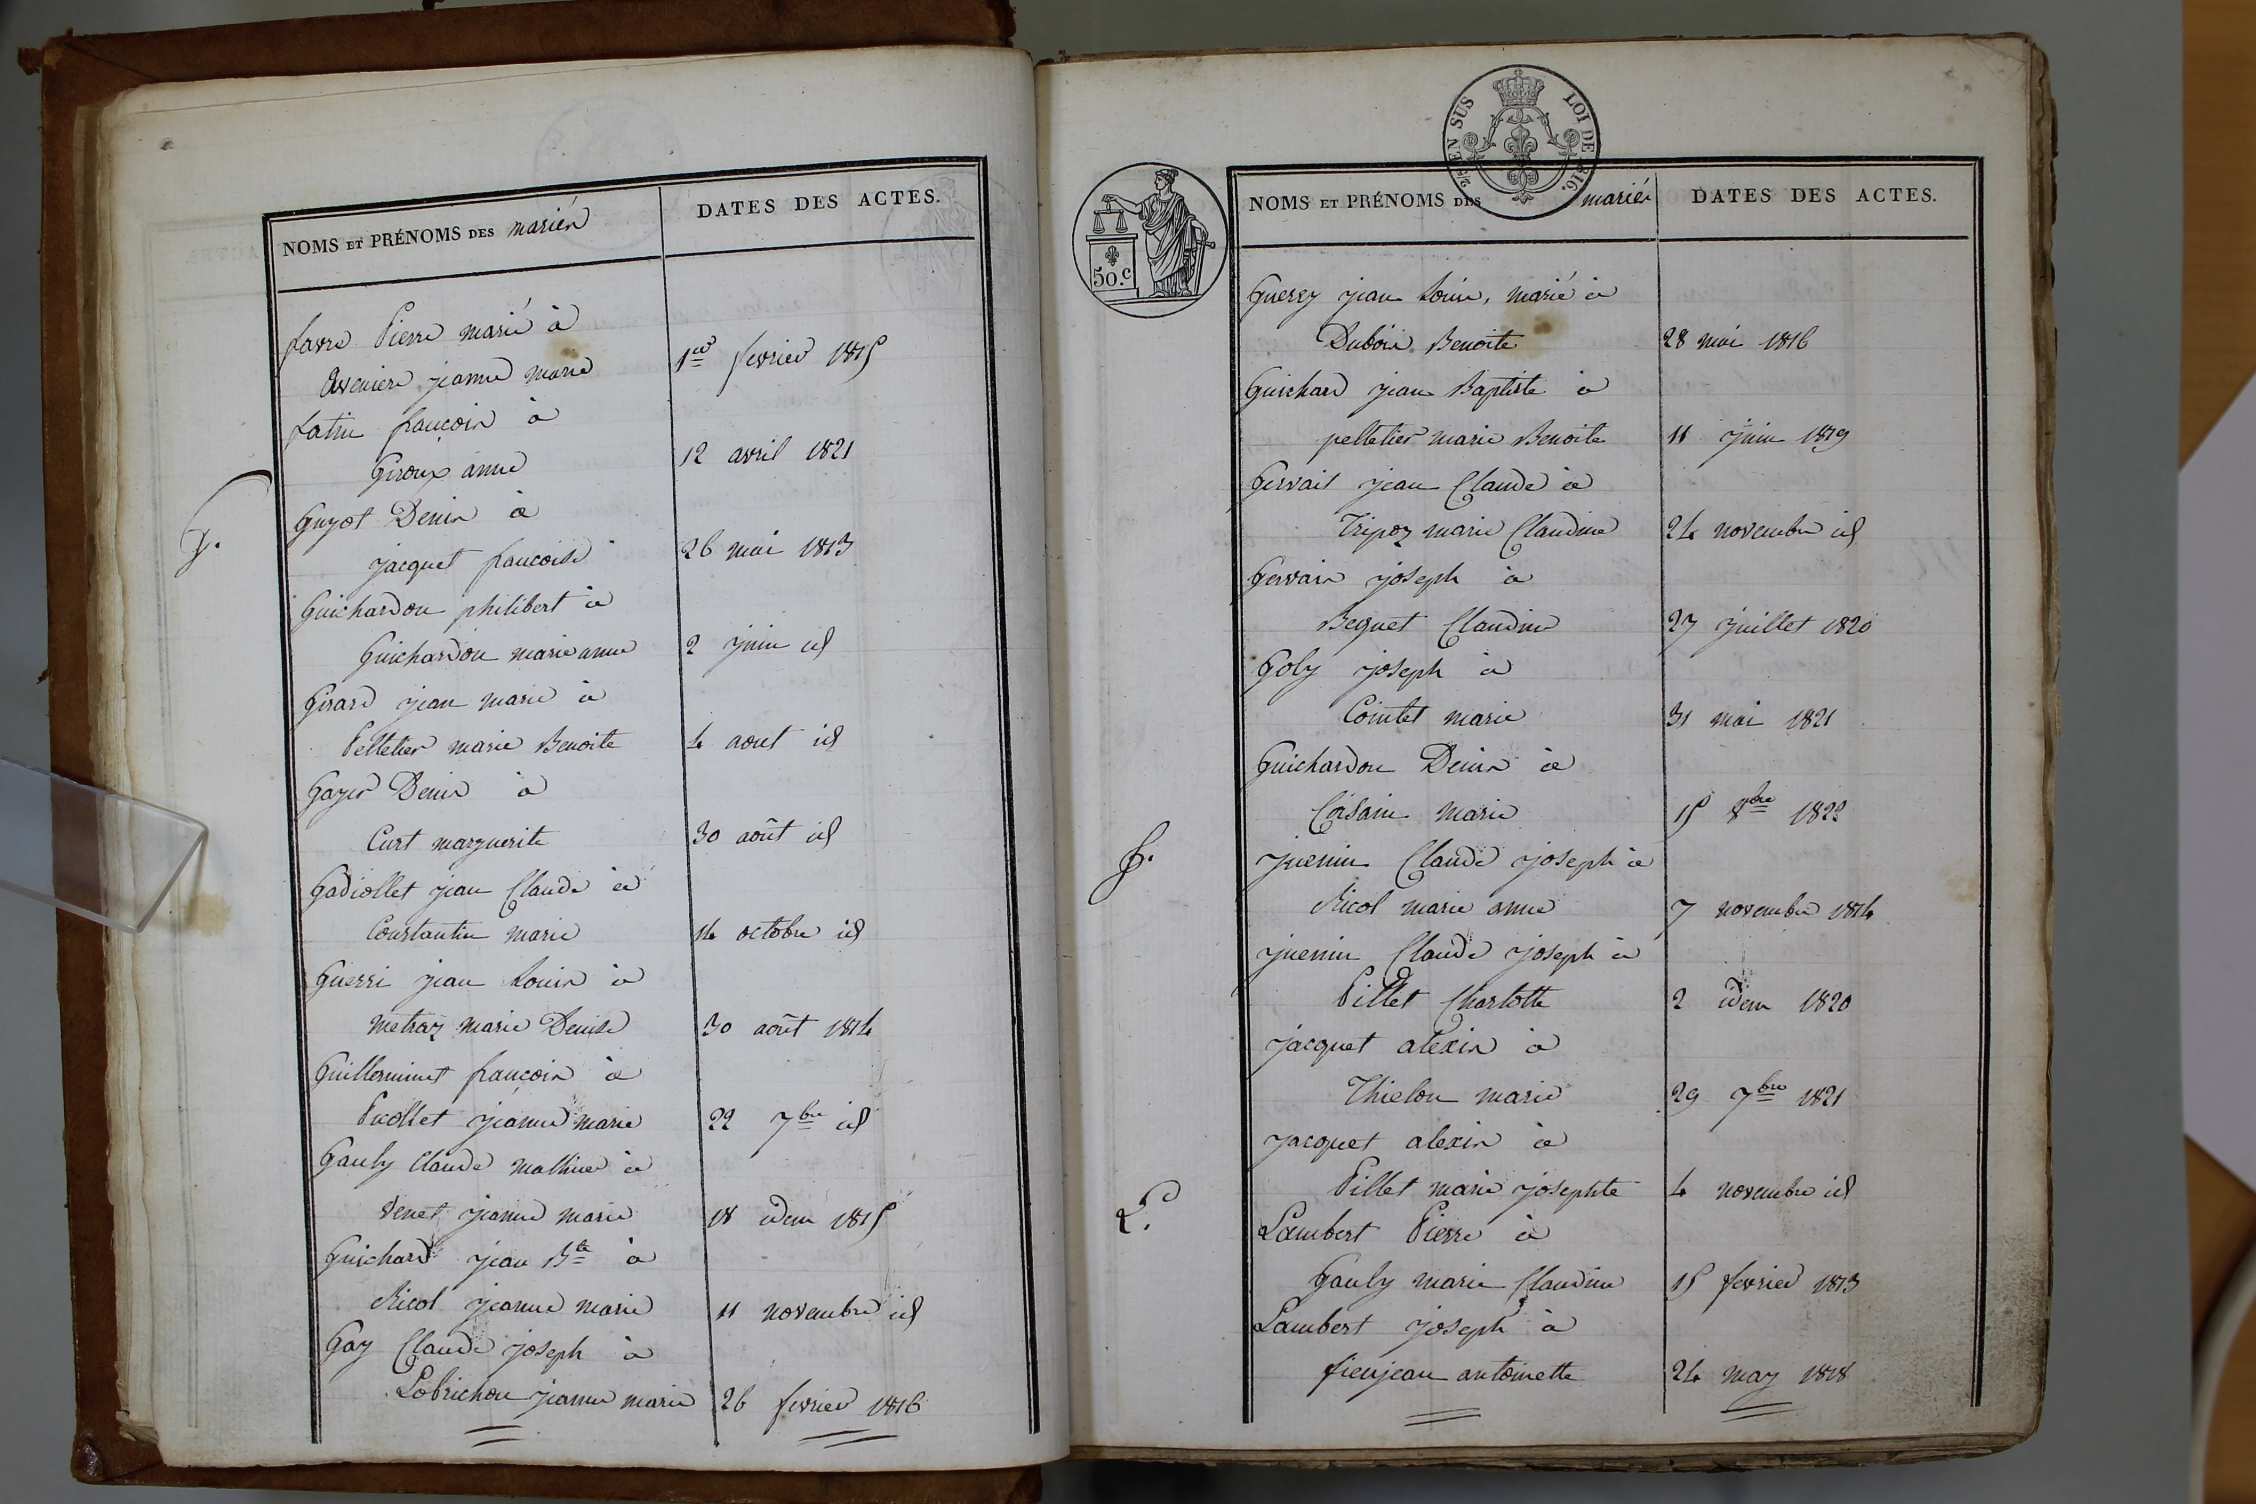 NOMS ET PRÉNOMS DES mariés
DATES DES ACTES.
favre Pierre marié à
Aveniere jeanne marie 1er fevrier 1815
fatin françois à
Giroux anne 12 avril 1821
G.
Guyot Denis à
jacquet francoise 26 mai 1813
Guichardon philibert à
Guichardon marie anne 2 juin id
Girard jean marie à
Pelletier marie Benoite 4 aout id
Gayer Denis à
Curt marguerite 30 août id
Gadiollet jean Claude à
Constantin marie 14 octobre id
Guerri jean Louis à
metraz marie Denise 30 août 1814
Guillerminet françois à
Picollet jeanne marie 22 7bre id
Gauly Claude mathieu à
venet jeanne marie 18 idem 1815
Guichard jean Bte à
Ricol jeanne marie 11 novembre id
Gay Claude joseph à
Lobrichon jeanne marie 26 fevrier 1816
2/5 EN SUS LOI DE 1816.
50.c
NOMS ET PRÉNOMS DES mariés
DATES DES ACTES.
Guerey jean Louis, marié à
Dubois Benoite 28 mai 1816
Guichard jean Baptiste à
pelletier marie Benoite 11 juin 1819
Gervait jean Claude à
Tripoz marie Claudine 24 novembre id
Gervais joseph à
Bequet Claudine 27 juillet 1820
Goly joseph à
Cointet marie 31 mai 1821
Guichardon Denis à
Coisain marie 15 8bre 1822
J.
juenin Claude joseph à
Ricol marie anne 7 novembre 1814
juenin Claude joseph à
Pillet Charlotte 2 idem 1820
jacquet alexis à
Thielon marie 29 7bre 1821
jacquet alexis à
Pillet marie josephte 4 novembre id
L.
Lambert Pierre à
Gauly marie Claudine 15 fevrier 1813
Lambert joseph à
fienjean antoinette 24 may 1818